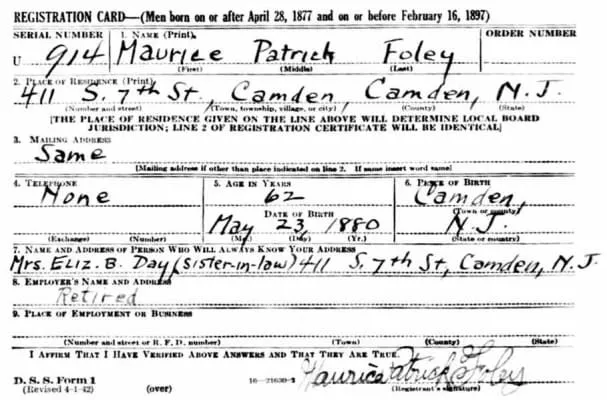 REGISTRATION CARD—(Men born on or after April 28, 1877 and on or before February 16, 1897)
SERIAL NUMBER 1. NAME (Print) ORDER NUMBER
U 914 Maurice Patrick Foley
(First) (Middle) (Last)
2. PLACE OF RESIDENCE (Print)
411 S. 7th St, Camden Camden, N.J.
(Number and street) (Town, township, village, or city) (County) (State)
[THE PLACE OF RESIDENCE GIVEN ON THE LINE ABOVE WILL DETERMINE LOCAL BOARD
JURISDICTION; LINE 2 OF REGISTRATION CERTIFICATE WILL BE IDENTICAL]
3. MAILING ADDRESS
Same
[Mailing address if other than place indicated on line 2. If same insert word same]
4. TELEPHONE 5. AGE IN YEARS 6. PLACE OF BIRTH
None 62 Camden,
DATE OF BIRTH (Town or county)
May 23, 1880 N.J.
(Exchange) (Number) (Mo.) (Day) (Yr.) (State or country)
7. NAME AND ADDRESS OF PERSON WHO WILL ALWAYS KNOW YOUR ADDRESS
Mrs. Eliz. B. Day (sister-in-law) 411 S. 7th St, Camden, N.J.
8. EMPLOYER'S NAME AND ADDRESS
Retired
9. PLACE OF EMPLOYMENT OR BUSINESS
(Number and street or R. F. D. number) (Town) (County) (State)
I AFFIRM THAT I HAVE VERIFIED ABOVE ANSWERS AND THAT THEY ARE TRUE.
D. S. S. Form 1 Maurice Patrick Foley
(Revised 4-1-42) (over) 16—21630-2 (Registrant's signature)